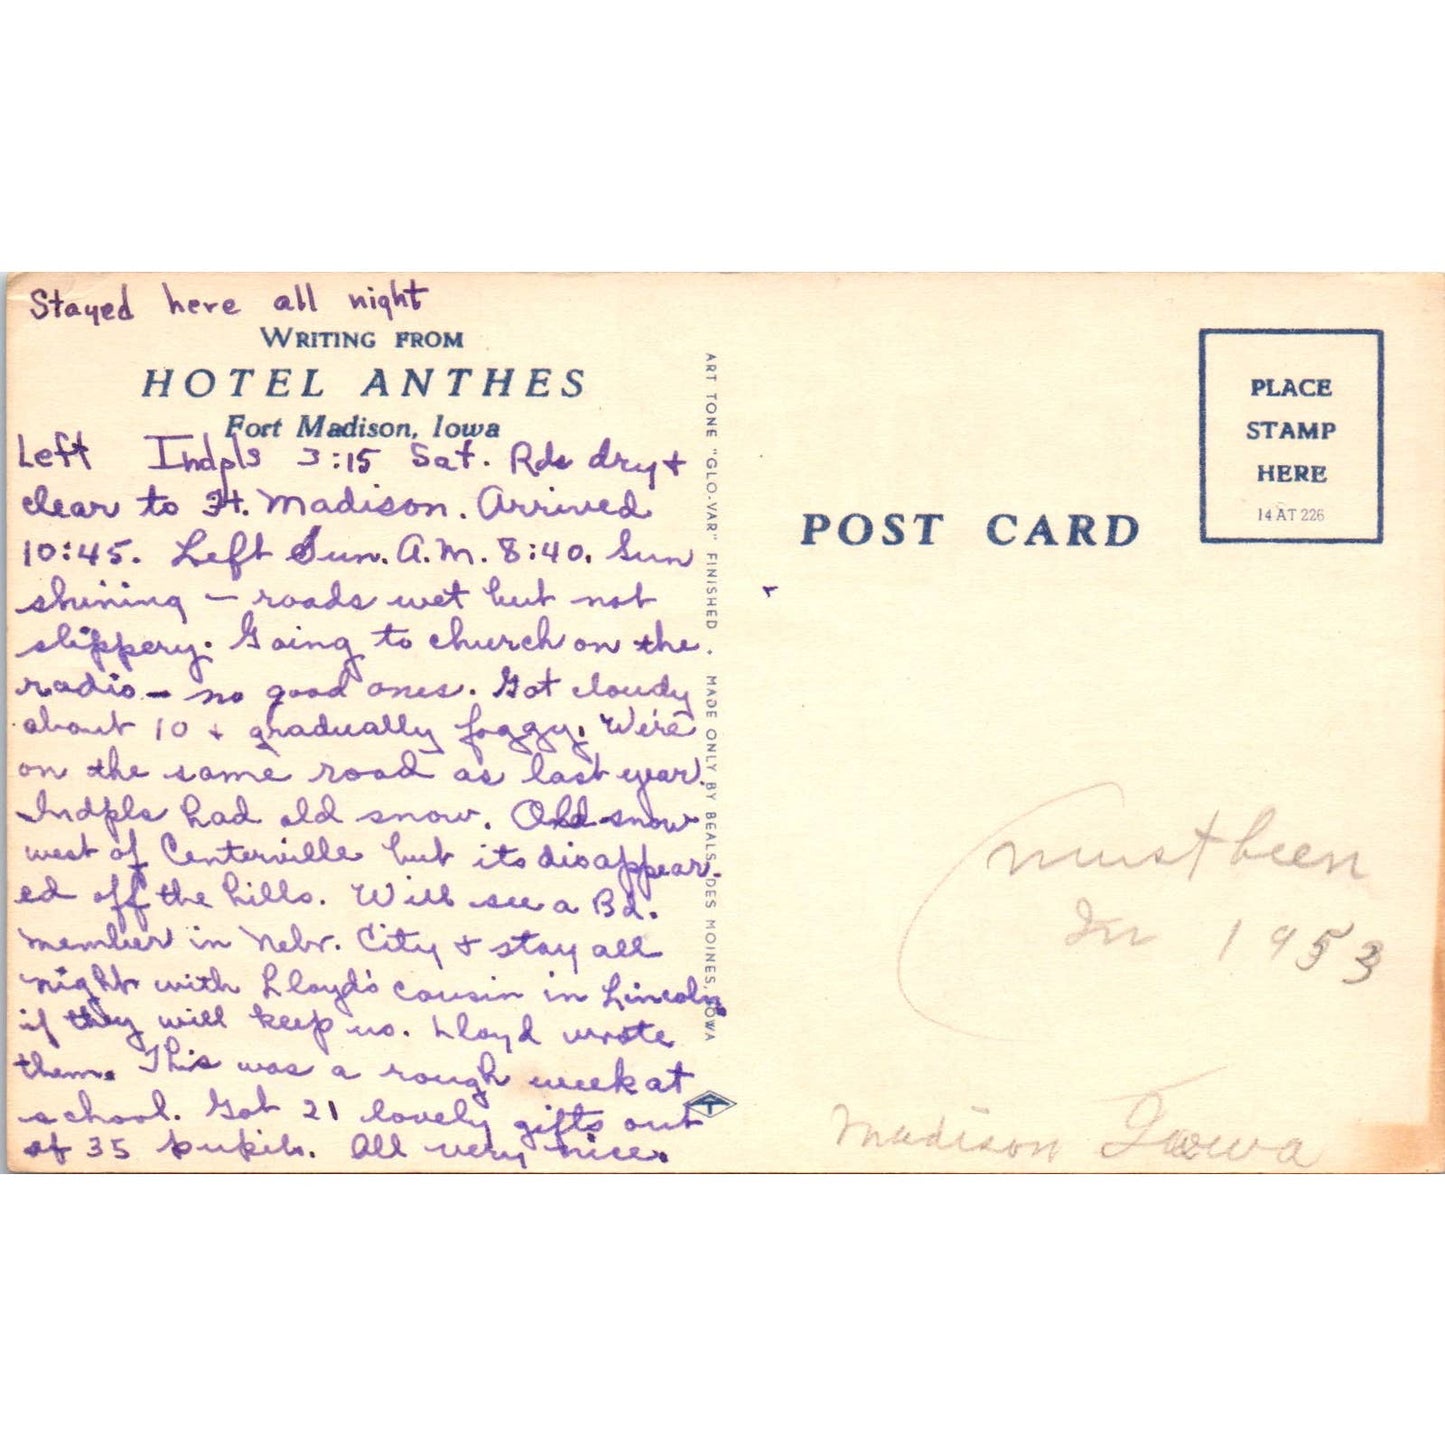 Stayed here all night
WRITING FROM
HOTEL ANTHES
Fort Madison, Iowa
Left Indpls 3:15 Sat. Rds dry +
clear to Ft. Madison. Arrived
10:45. Left Sun. A.M. 8:40. Sun
shining — roads wet but not
slippery. Going to church on the
radio — no good ones. Got cloudy
about 10 + gradually foggy. We're
on the same road as last year.
Indpls had old snow. Old snow
west of Centerville but its disappear-
ed off the hills. Will see a Bd.
member in Nebr. City + stay all
night with Lloyd's cousin in Lincoln
if they will keep us. Lloyd wrote
them. This was a rough week at
school. Got 21 lovely gifts out
of 35 pupils. All very nice.
ART TONE "GLO-VAR" FINISHED . MADE ONLY BY BEALS, DES MOINES, IOWA
POST CARD
PLACE
STAMP
HERE
14 AT 226
must been
In 1953
Madison Iowa